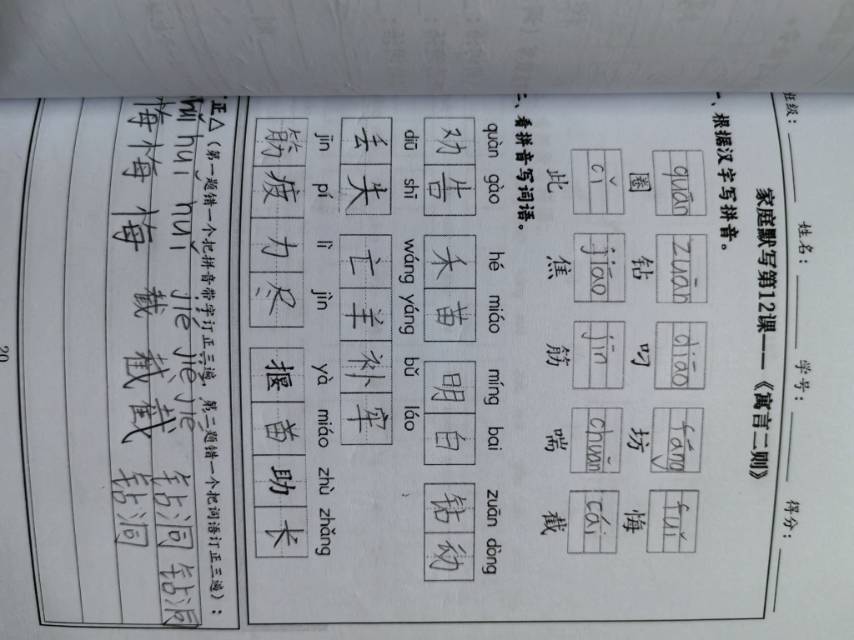 班级： 姓名： 学号： 得分：
家庭默写第12课——《寓言二则》
一、根据汉字写拼音。
quān zuān diāo fáng fuǐ
圈 钻 叼 坊 悔
cǐ jiāo jīn chuǎn cái
此 焦 筋 喘 截
二、看拼音写词语。
quàn gào hé miáo míng bai zuān dòng
劝告 禾苗 明白 钻幼
diū shī wáng yáng bǔ láo
丢失 亡羊补牢
jīn pí lì jìn yà miáo zhù zhǎng
筋疲力尽 揠苗助长
正△（第一题错一个把拼音带字订正三遍，第二题错一个把词语订正三遍）：
huǐ huǐ jié jié jié
悔 悔 悔 截 截 截 钻洞 钻洞
钻洞
20